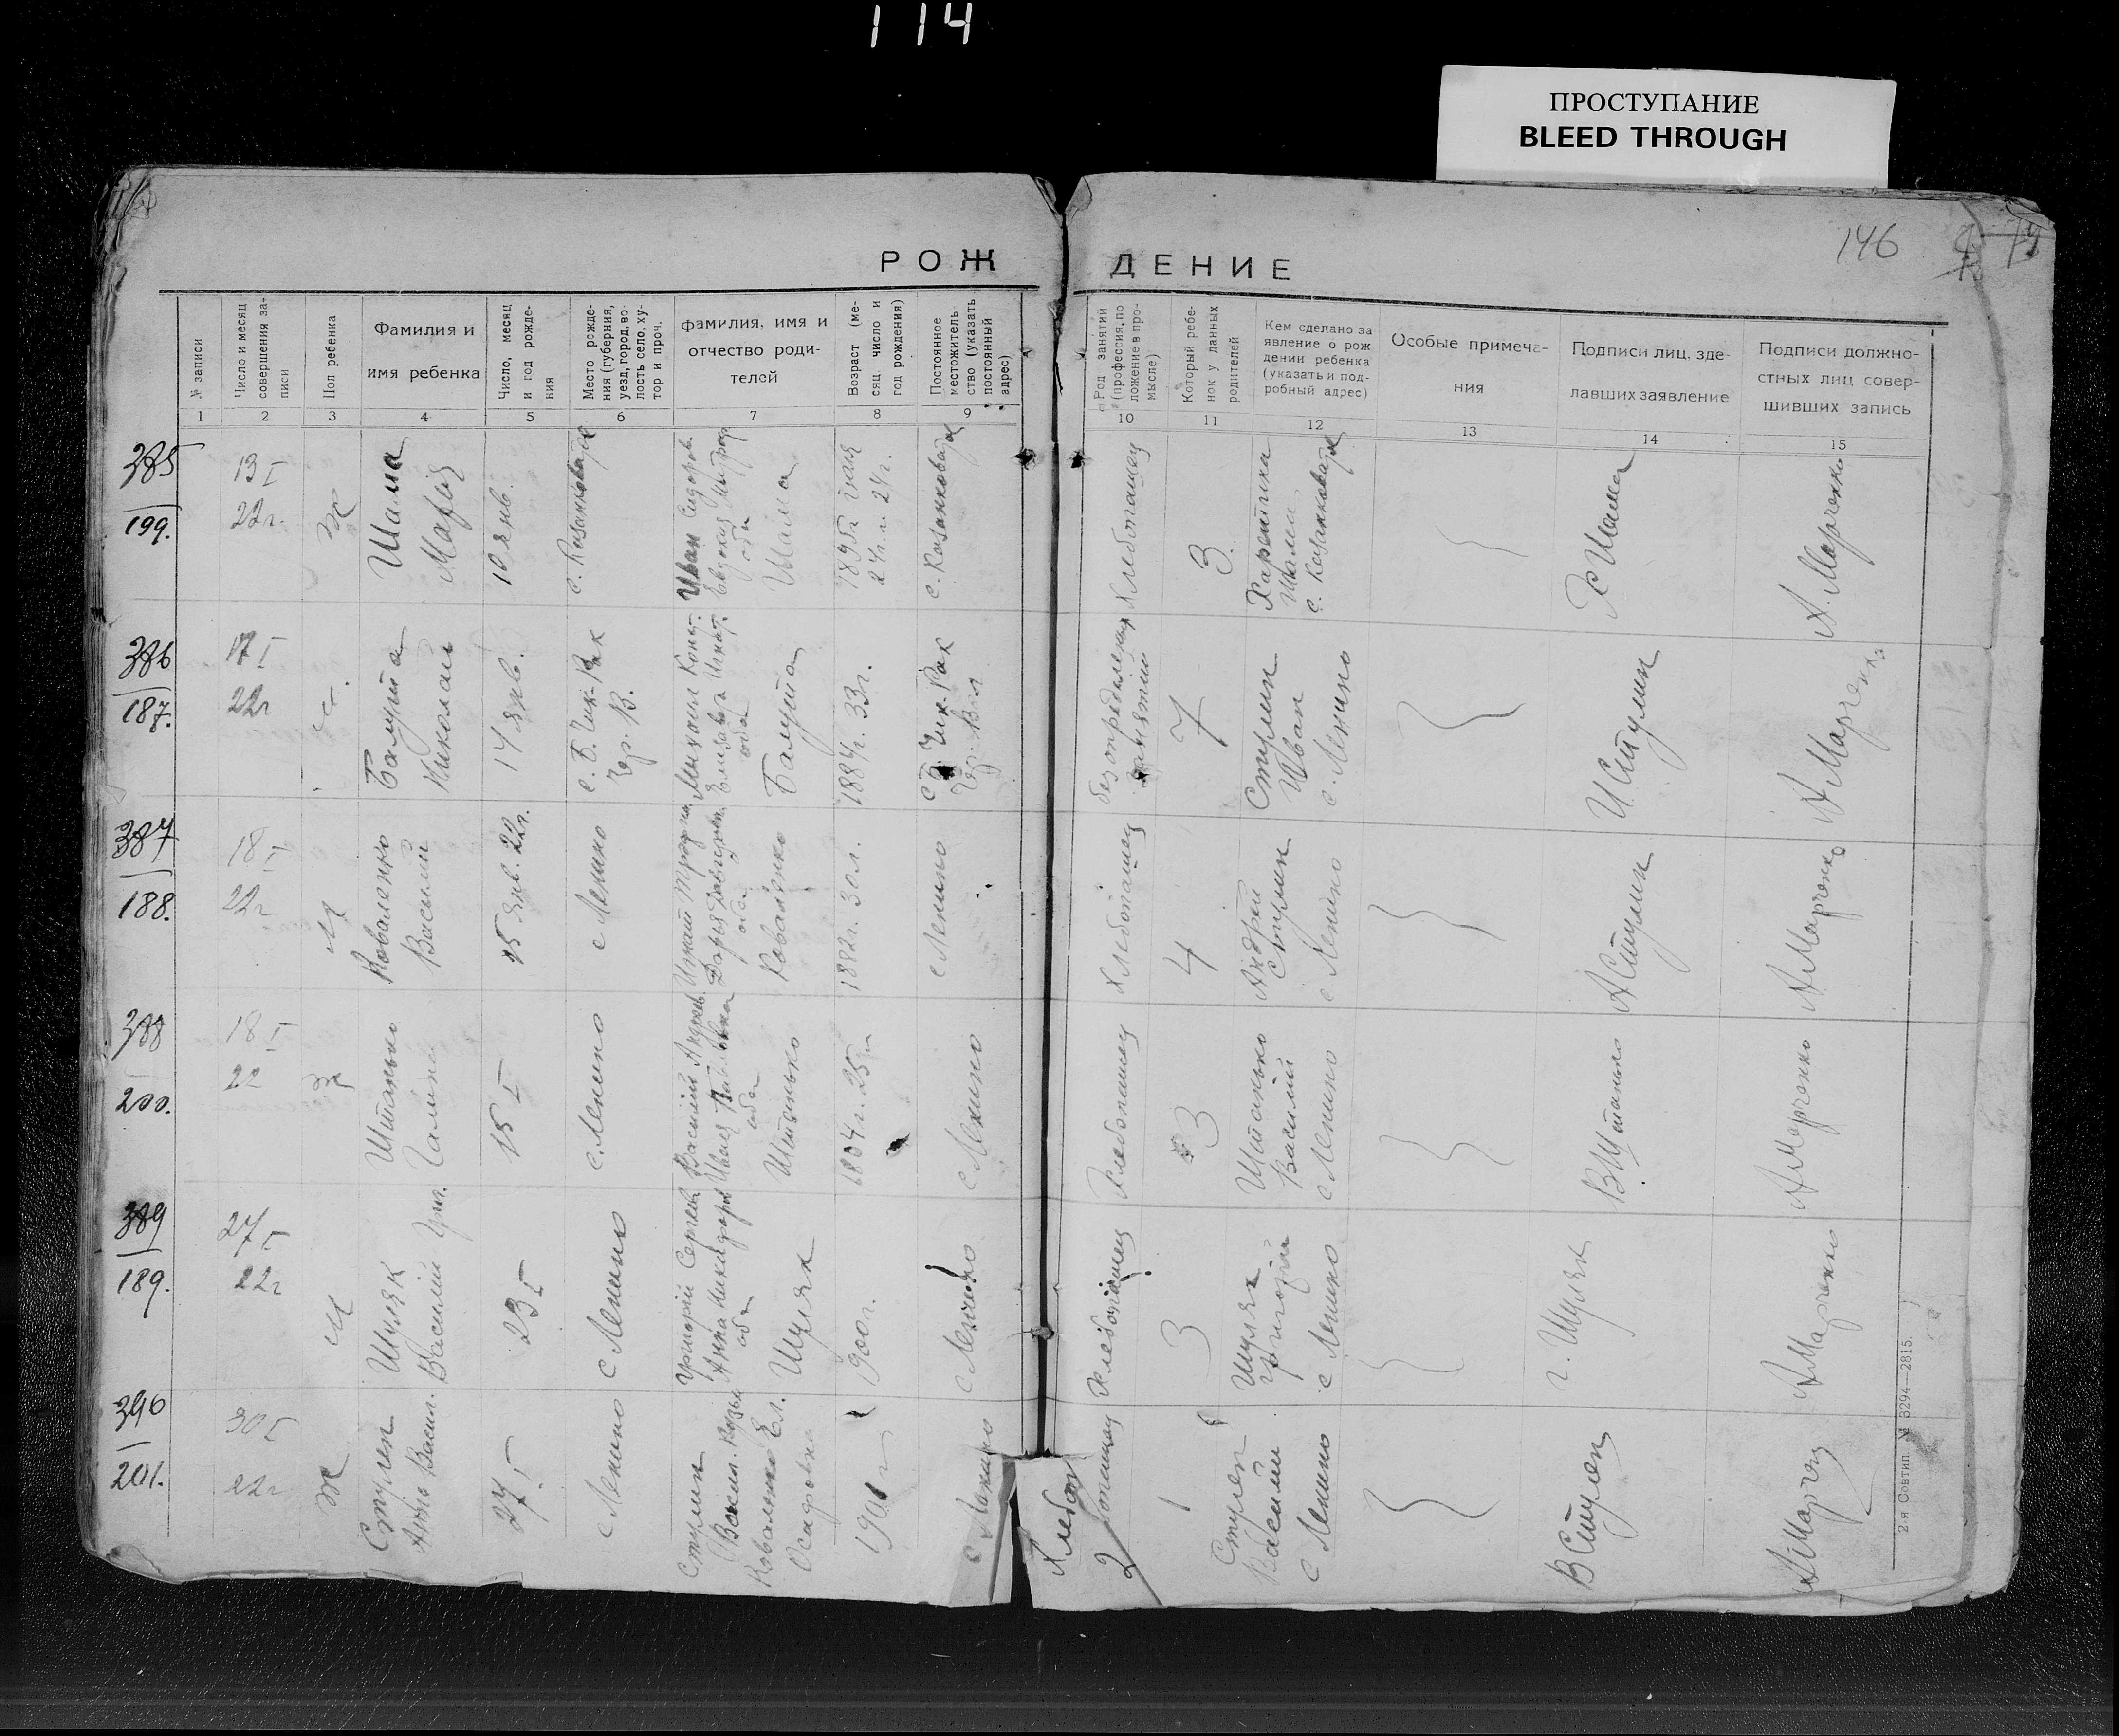 114
ПРОСТУПАНИЕ
BLEED THROUGH
146
РОЖ ДЕНИЕ
№ записи
Число и месяц совершения за-
писи
Пол ребенка
Фамилия и
имя ребенка
Число, месяц
и год рожде-
ния
Место рожде-
ния (губерния,
уезд, город, во-
лость село, ху-
тор и проч.
фамилия, имя и
отчество роди-
телей
Возраст (ме-
сяц, число и
год рождения)
Постоянное
местожитель-
ство (указать
постоянный
адрес)
Род занятий
(профессия, по
ложение в про-
мысле)
Который ребе-
нок у данных
родителей
Кем сделано за
явление о рож
дении ребенка
(указать и под-
робный адрес)
Особые примеча-
ния
Подписи лиц, зде-
лавших заявление
Подписи должно-
стных лиц совер-
шивших запись
1 2 3 4 5 6 7 8 9 10 11 12 13 14 15
385
199.
13 I
22 г.
Ж
Шама
Мария
10 янв.
с. Казанковатое
Иван Сидоров.
Евдокия
оба
Шама
с. Казанковатое
Хлебопашец
3.
Шама
с. Казанковатое
Х Шама
А. Марченко
386
187.
17 I
22 г
Балута
Николай
14 янв.
Михаил
Елизавета
оба
Балута
1884 г. 33 г.
без определенных
занятий
7
Стулин
Иван
с. Ленино
И Стулин
А Марченко
387
188.
18 I
22 г
М
Коваленко
Василий
15 янв. 22 г.
с Ленино
Игнат
Дарья
оба
Коваленко
1882 г. 30 л.
с Ленино
Хлебопашец
4
Андрей
Стулин
с Ленино
А Стулин
А Марченко
388
200.
18 I
22
Ж
Штанько
Галина
15 I
с. Ленино
Василий Андреев.
оба
Штанько
с Ленино
Хлебопашец
3
Штанько
Василий
с Ленино
В Штанько
А Марченко
389
189.
27 I
22 г
М
Шуляк
Василий Григ.
23 I
с Ленино
Григорий Сергеев
Анна Никифоров
оба
Шуляк
1900 г.
с Ленино
Хлебопашец
3
Шуляк
Григорий
с Ленино
г. Шуляк
А Марченко
390
201.
30 I
22 г
Ж
Стулен
Васил.
27 I
с Ленино
Стулин
Васил. Кузьм
Ел.
1901 г
с Ленино
Хлебопашец
2
1
Стулен
Василий
с Ленино
В Стулен
А Марчен
2-я Совтип. № 3294—2815.